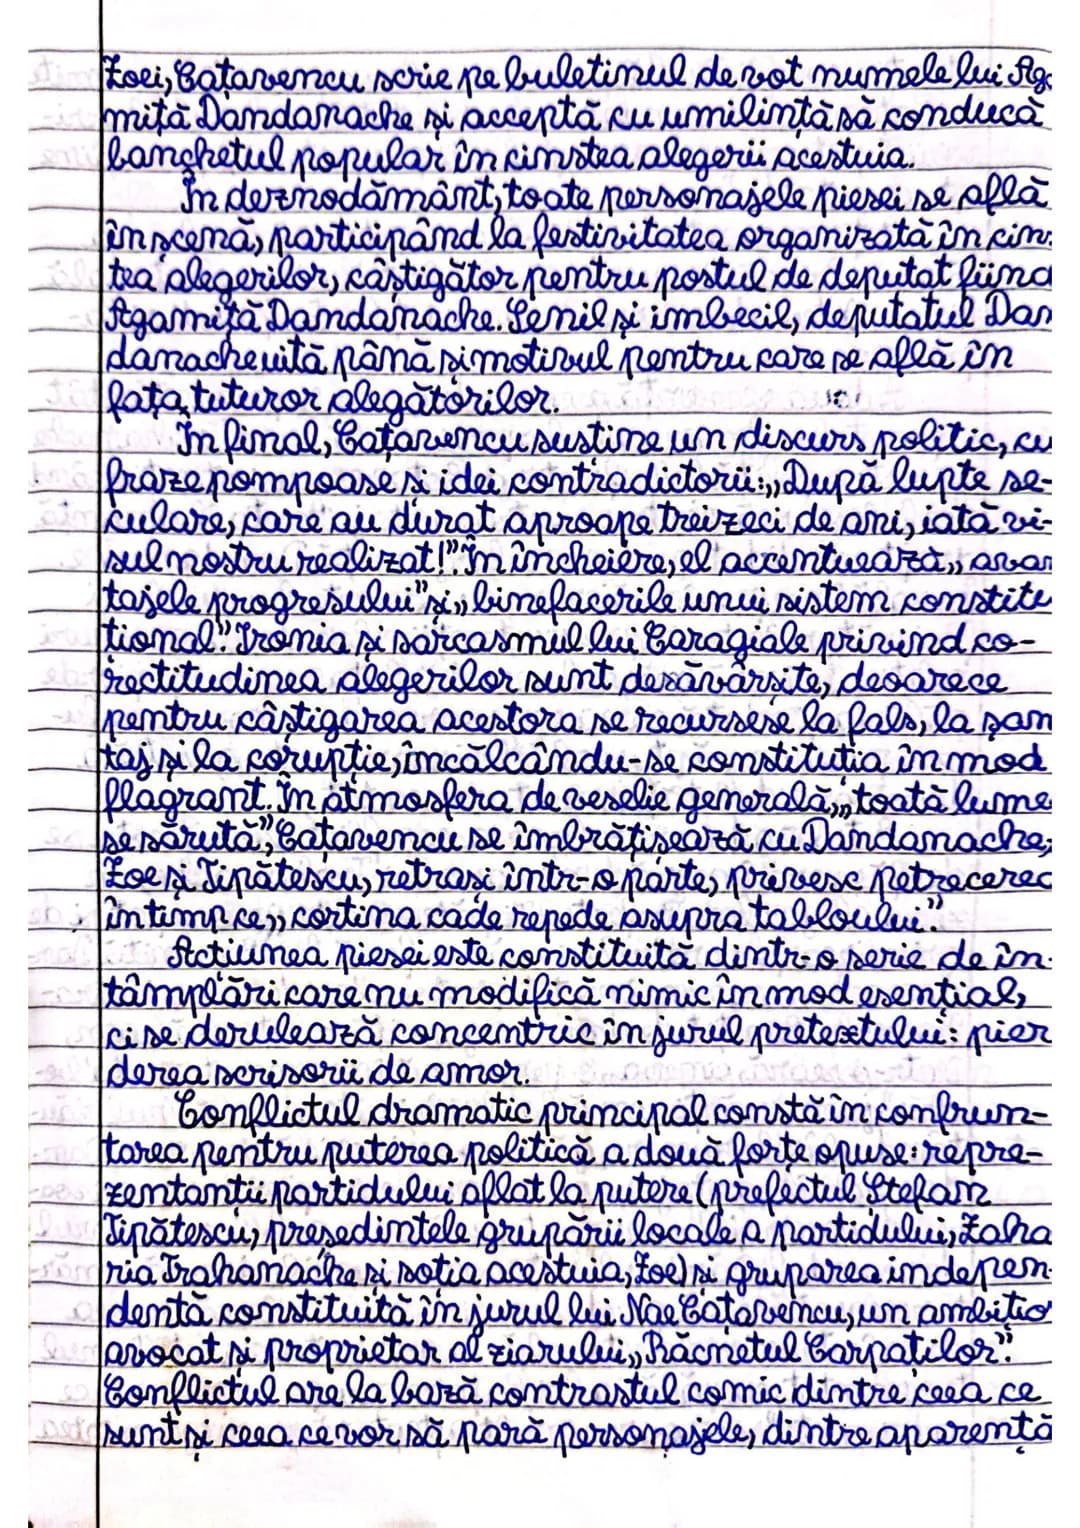 Zoei, Cațavencu scrie pe buletinul de vot numele lui Aga
miță Dandanache și acceptă cu umilință să conducă
banchetul popular în cinstea alegerii acestuia.
În deznodământ, toate personajele piesei se află
în scenă, participând la festivitatea organizată în cins
tea alegerilor, câștigător pentru postul de deputat fiind
Agamiță Dandanache. Senil și imbecil, deputatul Dan
danache uită până și motivul pentru care se află în
fața tuturor alegătorilor.
În final, Cațavencu susține un discurs politic, cu
fraze pompoase și idei contradictorii: „După lupte se-
culare, care au durat aproape treizeci de ani, iată vi-
sul nostru realizat!". În încheiere, el accentuează „avan
tajele progresului" și „binefacerile unui sistem constitu
țional". Ironia și sarcasmul lui Caragiale privind co-
rectitudinea alegerilor sunt desăvârșite, deoarece
pentru câștigarea acestora se recursese la fals, la șan
taj și la corupție, încălcându-se constituția în mod
flagrant. În atmosfera de veselie generală, „toată lumea
se sărută", Cațavencu se îmbrățișează cu Dandanache,
Zoe și Tipătescu, retrași într-o parte, privesc petrecerea
în timp ce „cortina cade repede asupra tabloului".
Acțiunea piesei este constituită dintr-o serie de în-
tâmplări care nu modifică nimic în mod esențial,
ci se derulează concentric în jurul pretextului: pier
derea scrisorii de amor.
Conflictul dramatic principal constă în confrun-
tarea pentru puterea politică a două forțe opuse: repre-
zentanții partidului aflat la putere (prefectul Ștefan
Tipătescu, președintele grupării locale a partidului, Zaha
ria Trahanache și soția acestuia, Zoe) și gruparea indepen-
dentă constituită în jurul lui Nae Cațavencu, un ambițio
avocat și proprietar al ziarului „Răcnetul Carpaților".
Conflictul are la bază contrastul comic dintre ceea ce
sunt și ceea ce vor să pară personajele, dintre aparență